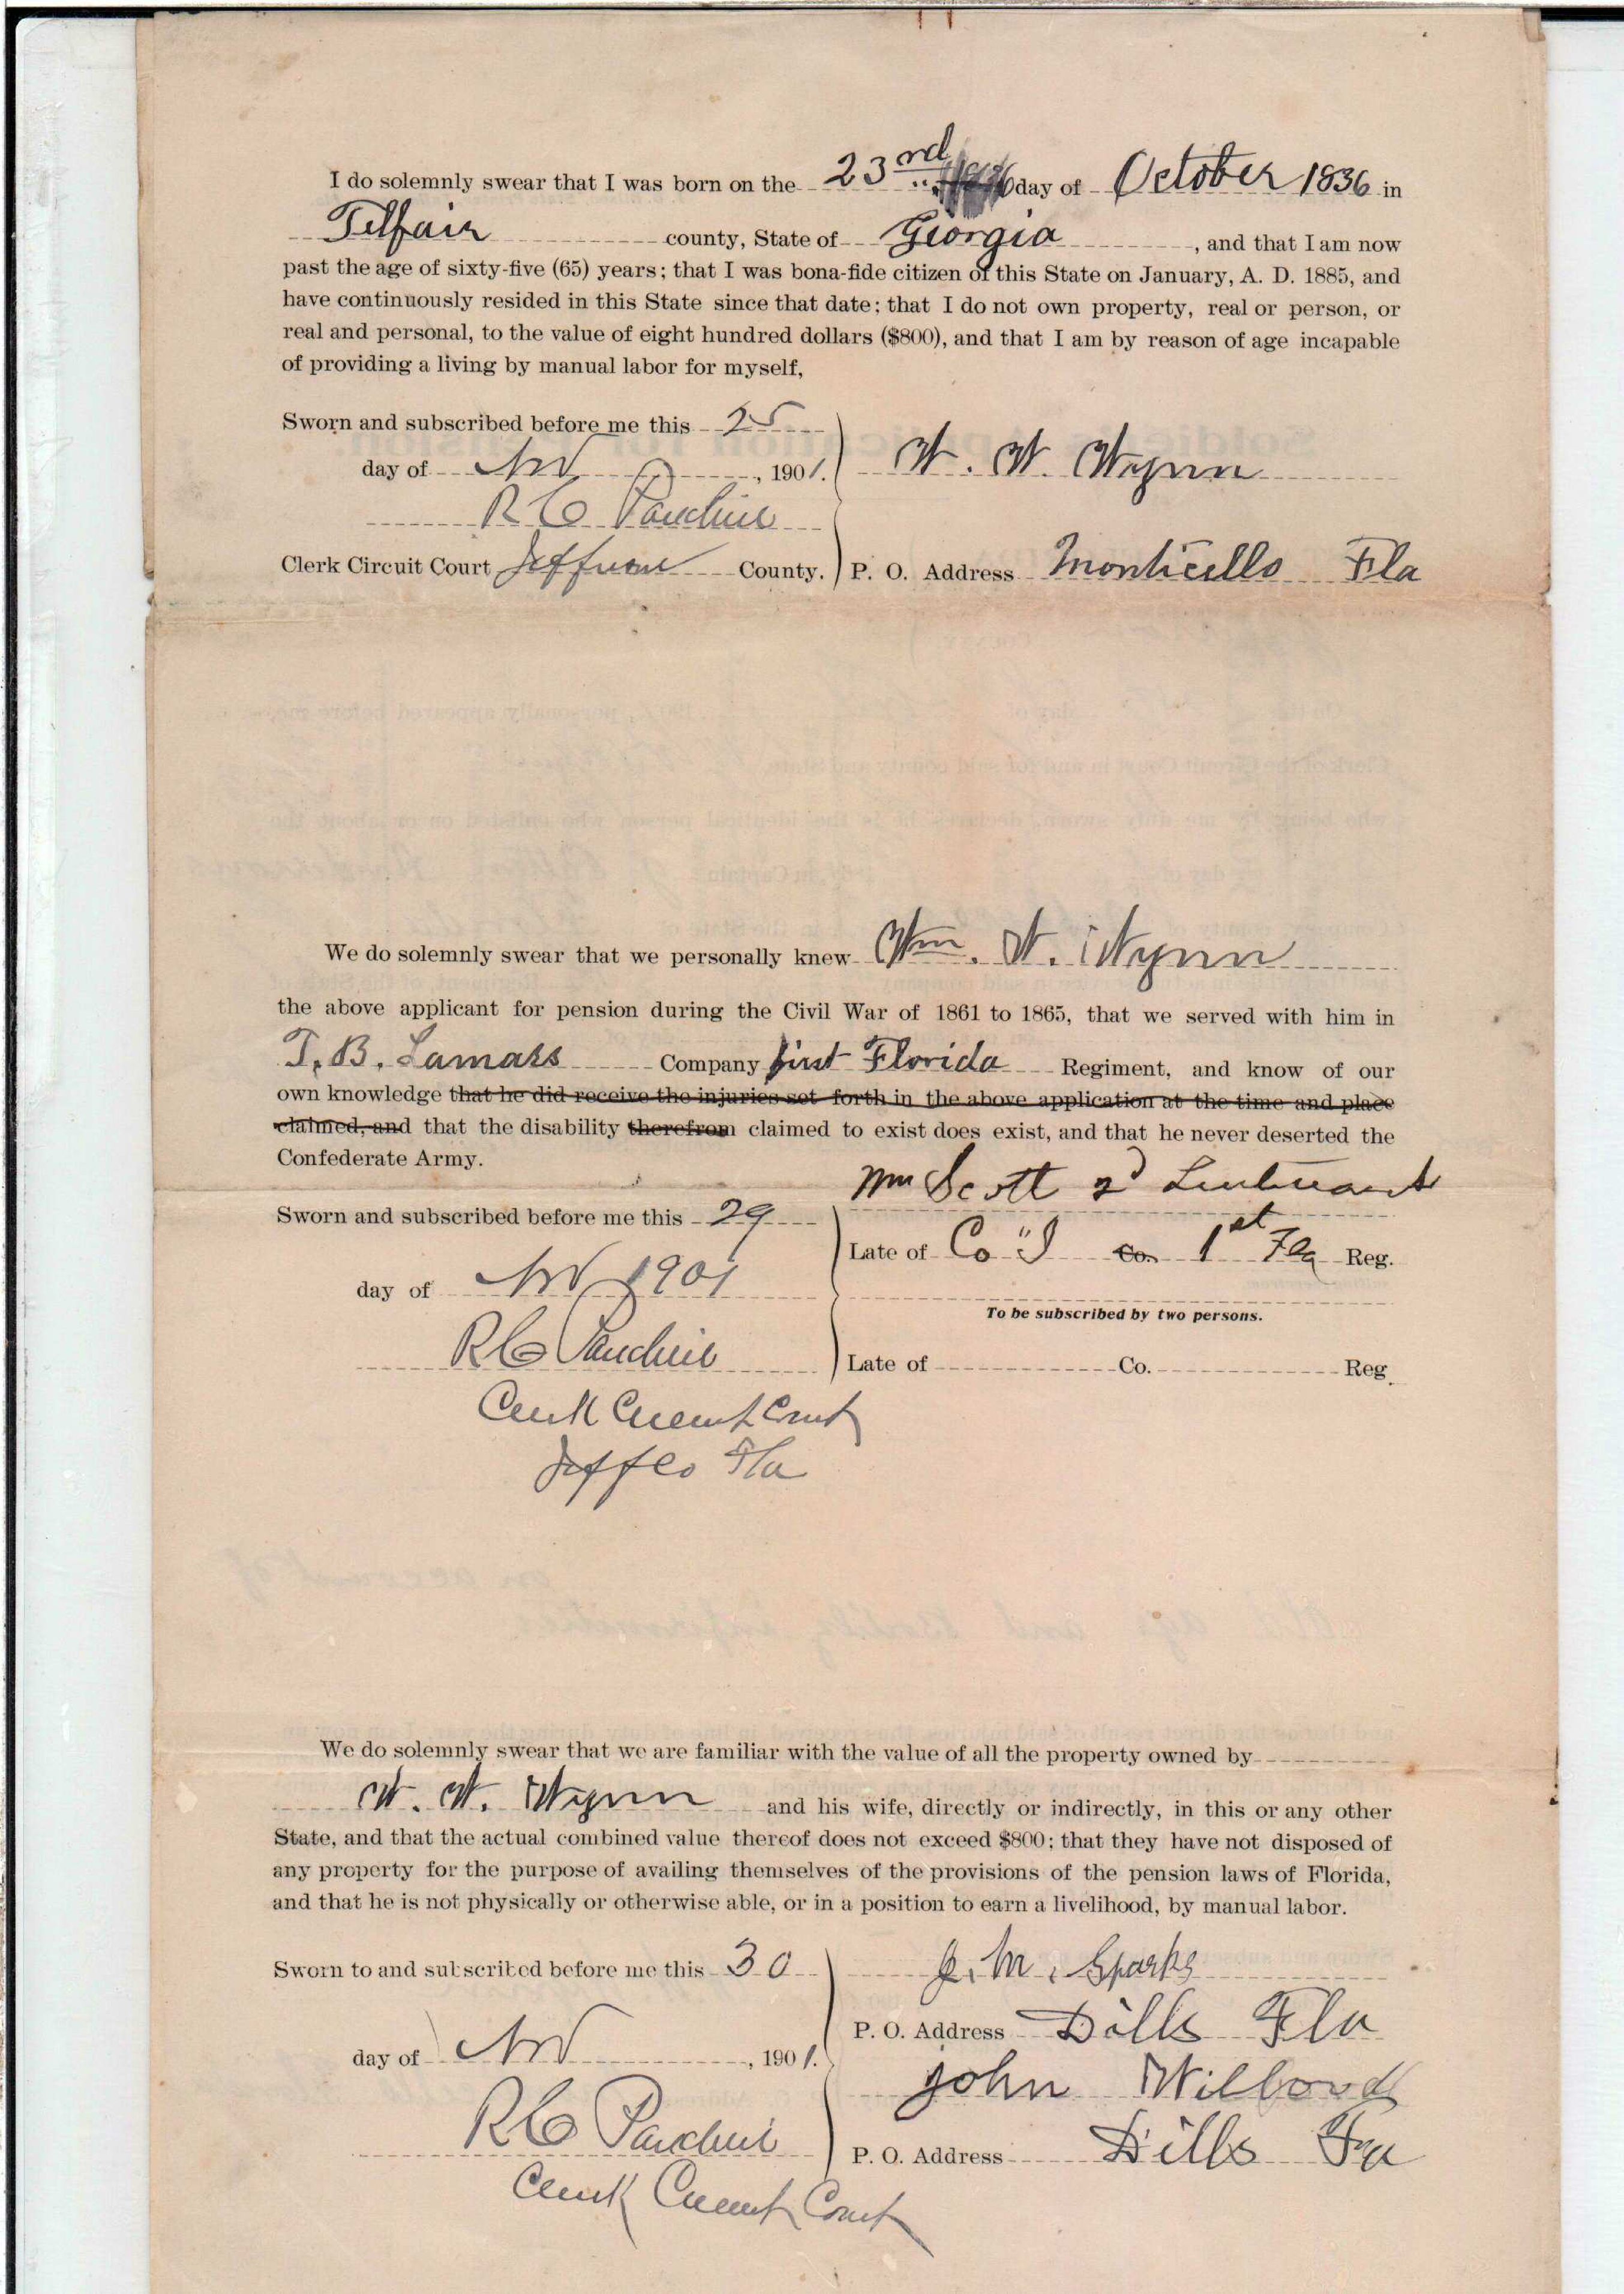 I do solemnly swear that I was born on the 23rd day of October 1836 in
Telfair county, State of Georgia, and that I am now
past the age of sixty-five (65) years; that I was bona-fide citizen of this State on January, A. D. 1885, and
have continuously resided in this State since that date; that I do not own property, real or person, or
real and personal, to the value of eight hundred dollars ($800), and that I am by reason of age incapable
of providing a living by manual labor for myself,
Sworn and subscribed before me this 25
day of Nov, 1901. W. W. Wynn
R C
Clerk Circuit Court Jefferson County. P. O. Address Monticello Fla
We do solemnly swear that we personally knew Wm. W. Wynn
the above applicant for pension during the Civil War of 1861 to 1865, that we served with him in
T. B. Lamars Company first Florida Regiment, and know of our
own knowledge that he did receive the injuries set forth in the above application at the time and place
claimed, and that the disability therefrom claimed to exist does exist, and that he never deserted the
Confederate Army.
Wm Scott 2d Lieutenant
Sworn and subscribed before me this 29
Late of Co "I Co. 1st Fla Reg.
day of Nov 1901
To be subscribed by two persons.
R C
Late of Co. Reg.
Clerk Circuit Court
Jeff Co Fla
We do solemnly swear that we are familiar with the value of all the property owned by
W. W. Wynn and his wife, directly or indirectly, in this or any other
State, and that the actual combined value thereof does not exceed $800; that they have not disposed of
any property for the purpose of availing themselves of the provisions of the pension laws of Florida,
and that he is not physically or otherwise able, or in a position to earn a livelihood, by manual labor.
Sworn to and subscribed before me this 30 J. M. Sparks
P. O. Address Dills Fla
day of Nov, 1901.
John
R C
P. O. Address Dills Fla
Clerk Circuit Court